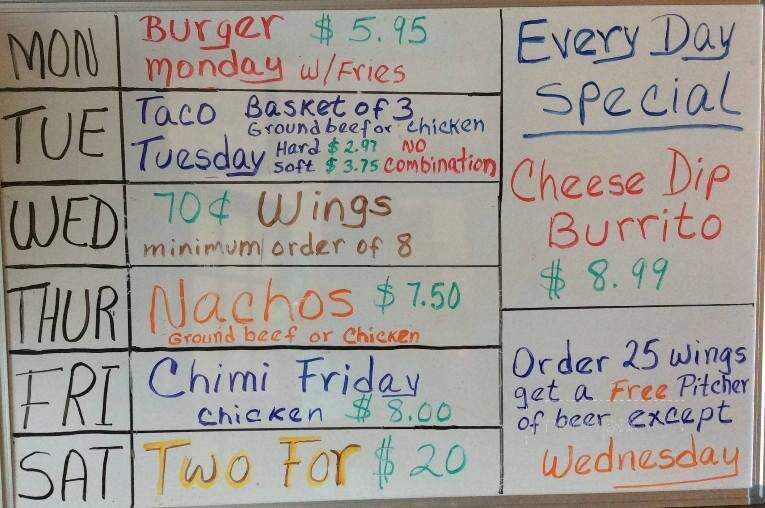 MON
Burger $ 5.95
monday w/Fries
TUE
Taco Basket of 3
Ground beef or chicken
Tuesday Hard $ 2.97 NO
Soft $ 3.75 combination
WED
70¢ Wings
minimum order of 8
THUR
Nachos $ 7.50
Ground beef or Chicken
FRI
Chimi Friday
chicken $ 8.00
SAT
Two For $ 20
Every Day
Special
Cheese Dip
Burrito
$ 8.99
Order 25 wings
get a Free Pitcher
of beer except
Wednesday